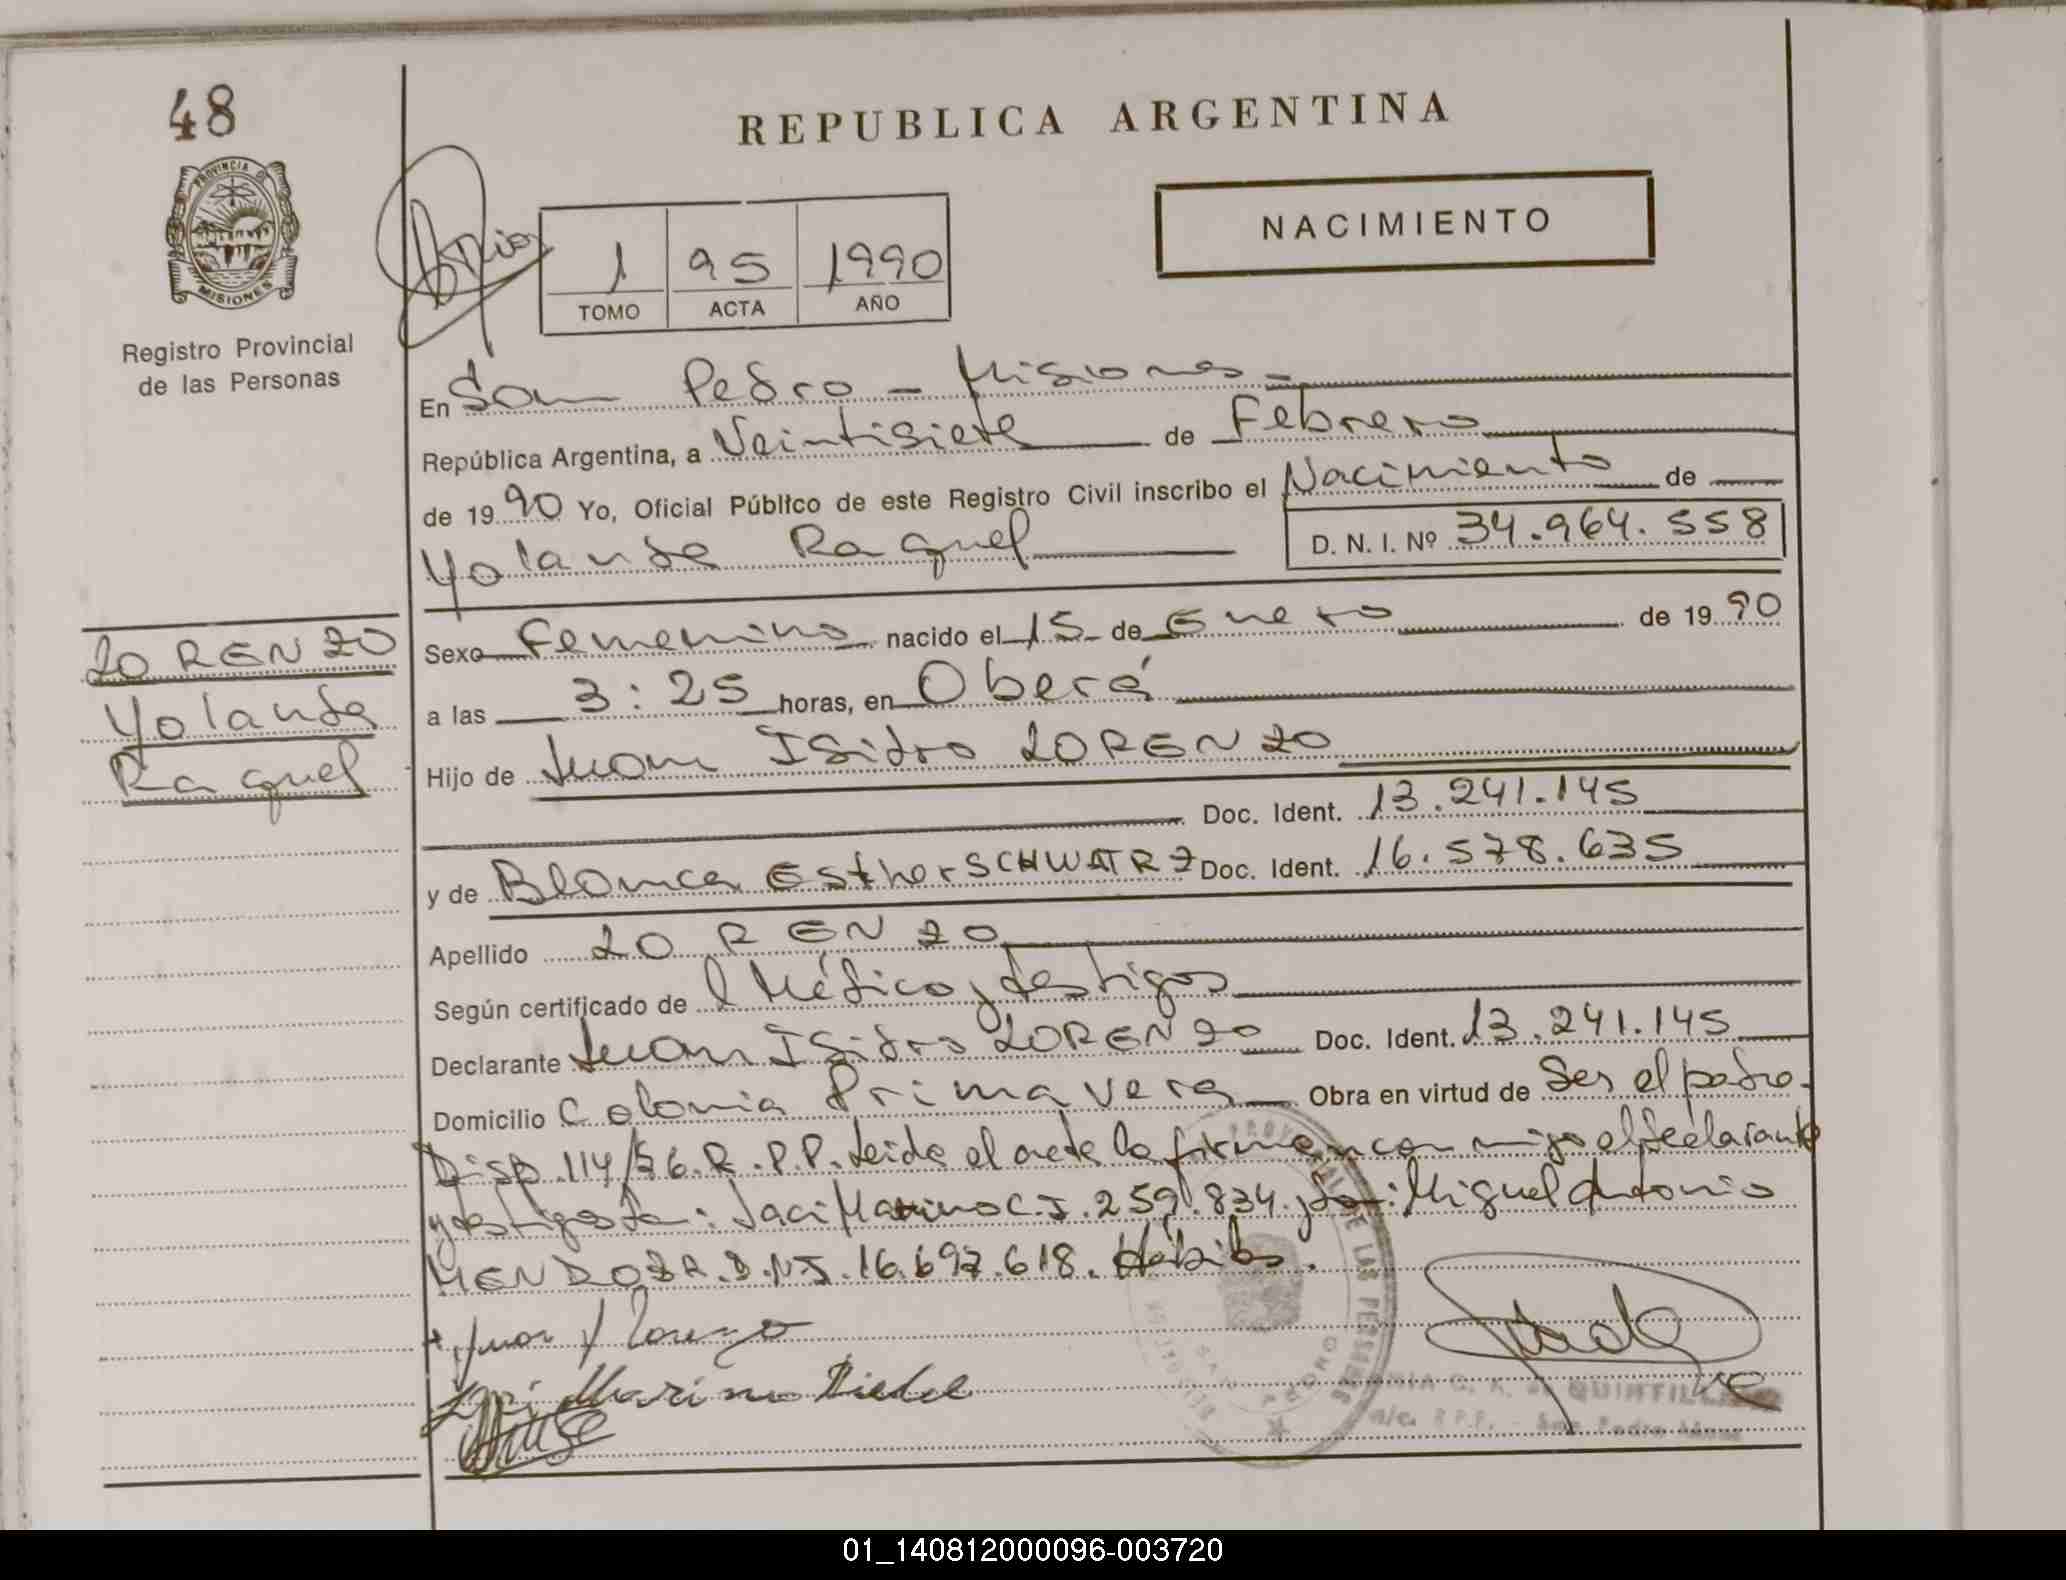 48
REPUBLICA ARGENTINA
PROVINCIA DE
MISIONES
Registro Provincial
de las Personas
1 95 1990
TOMO ACTA AÑO
NACIMIENTO
En San Pedro - Misiones -
República Argentina, a Veintisiete de Febrero
de 1990 Yo, Oficial Público de este Registro Civil inscribo el Nacimiento de
Yolanda Raquel D. N. I. Nº 34.964.558
LORENZO
Yolanda
Raquel
Sexo Femenino nacido el 15 de Enero de 1990
a las 3:25 horas, en Oberá
Hijo de Juan Isidro LORENZO
Doc. Ident. 13.241.145
y de Blanca Esther SCHWATRZ Doc. Ident. 16.578.635
Apellido LORENZO
Según certificado de l Médico y testigos
Declarante Juan Isidro LORENZO Doc. Ident. 13.241.145
Domicilio Colonia Primavera Obra en virtud de Ser el padre.
Disp. 114/76.R.P.P. Leida el acta la firman con migo el declarante
y testigos Jaci Marino C.I. 259.834. y Miguel Antonio
MENDOZA. D.N.I. 16.697.618. Hábiles.
Juan I Lorenzo
Marino
QUINTILL
R.P.P. - San Pedro
SAN PEDRO
01_140812000096-003720